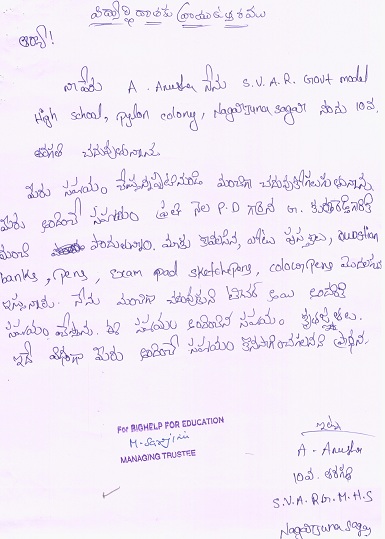 విద్యార్థి దాతకు వ్రాయు ఉత్తరము
ఆర్యా!
నా పేరు A. Anusha నేను S.V.A.R. Govt model
High school, pylon colony, Nagarjuna sagar నందు 10వ.
తరగతి చదువుతున్నాను.
మీరు సహాయం చేస్తున్నప్పటినుండి మంచిగా చదువుకోగలుగుతున్నాను
మీరు అందించే సహాయం ప్రతి నెల P.D గారైన
నుంచి పొందుతున్నాం. మాకు కావలసిన, నోటు పుస్తకాలు, question
banks, pens, exam pad sketchpens, colour pens మొదలగు
ఇస్తున్నారు. నేను మంచిగా చదువుకుని టీచర్ అయి అందరికి
సహాయం చేస్తాను. ఈ సహాయం అందించిన సహాయం కృతజ్ఞతలు.
ఇదే విధంగా మీరు అందించే సహాయం కొనసాగించగలరని ప్రార్థన.
For BIGHELP FOR EDUCATION
MANAGING TRUSTEE
ఇట్లు
A. Anusha
10వ. తరగతి
S.V.A.R G.M.H.S
Nagarjuna sagar